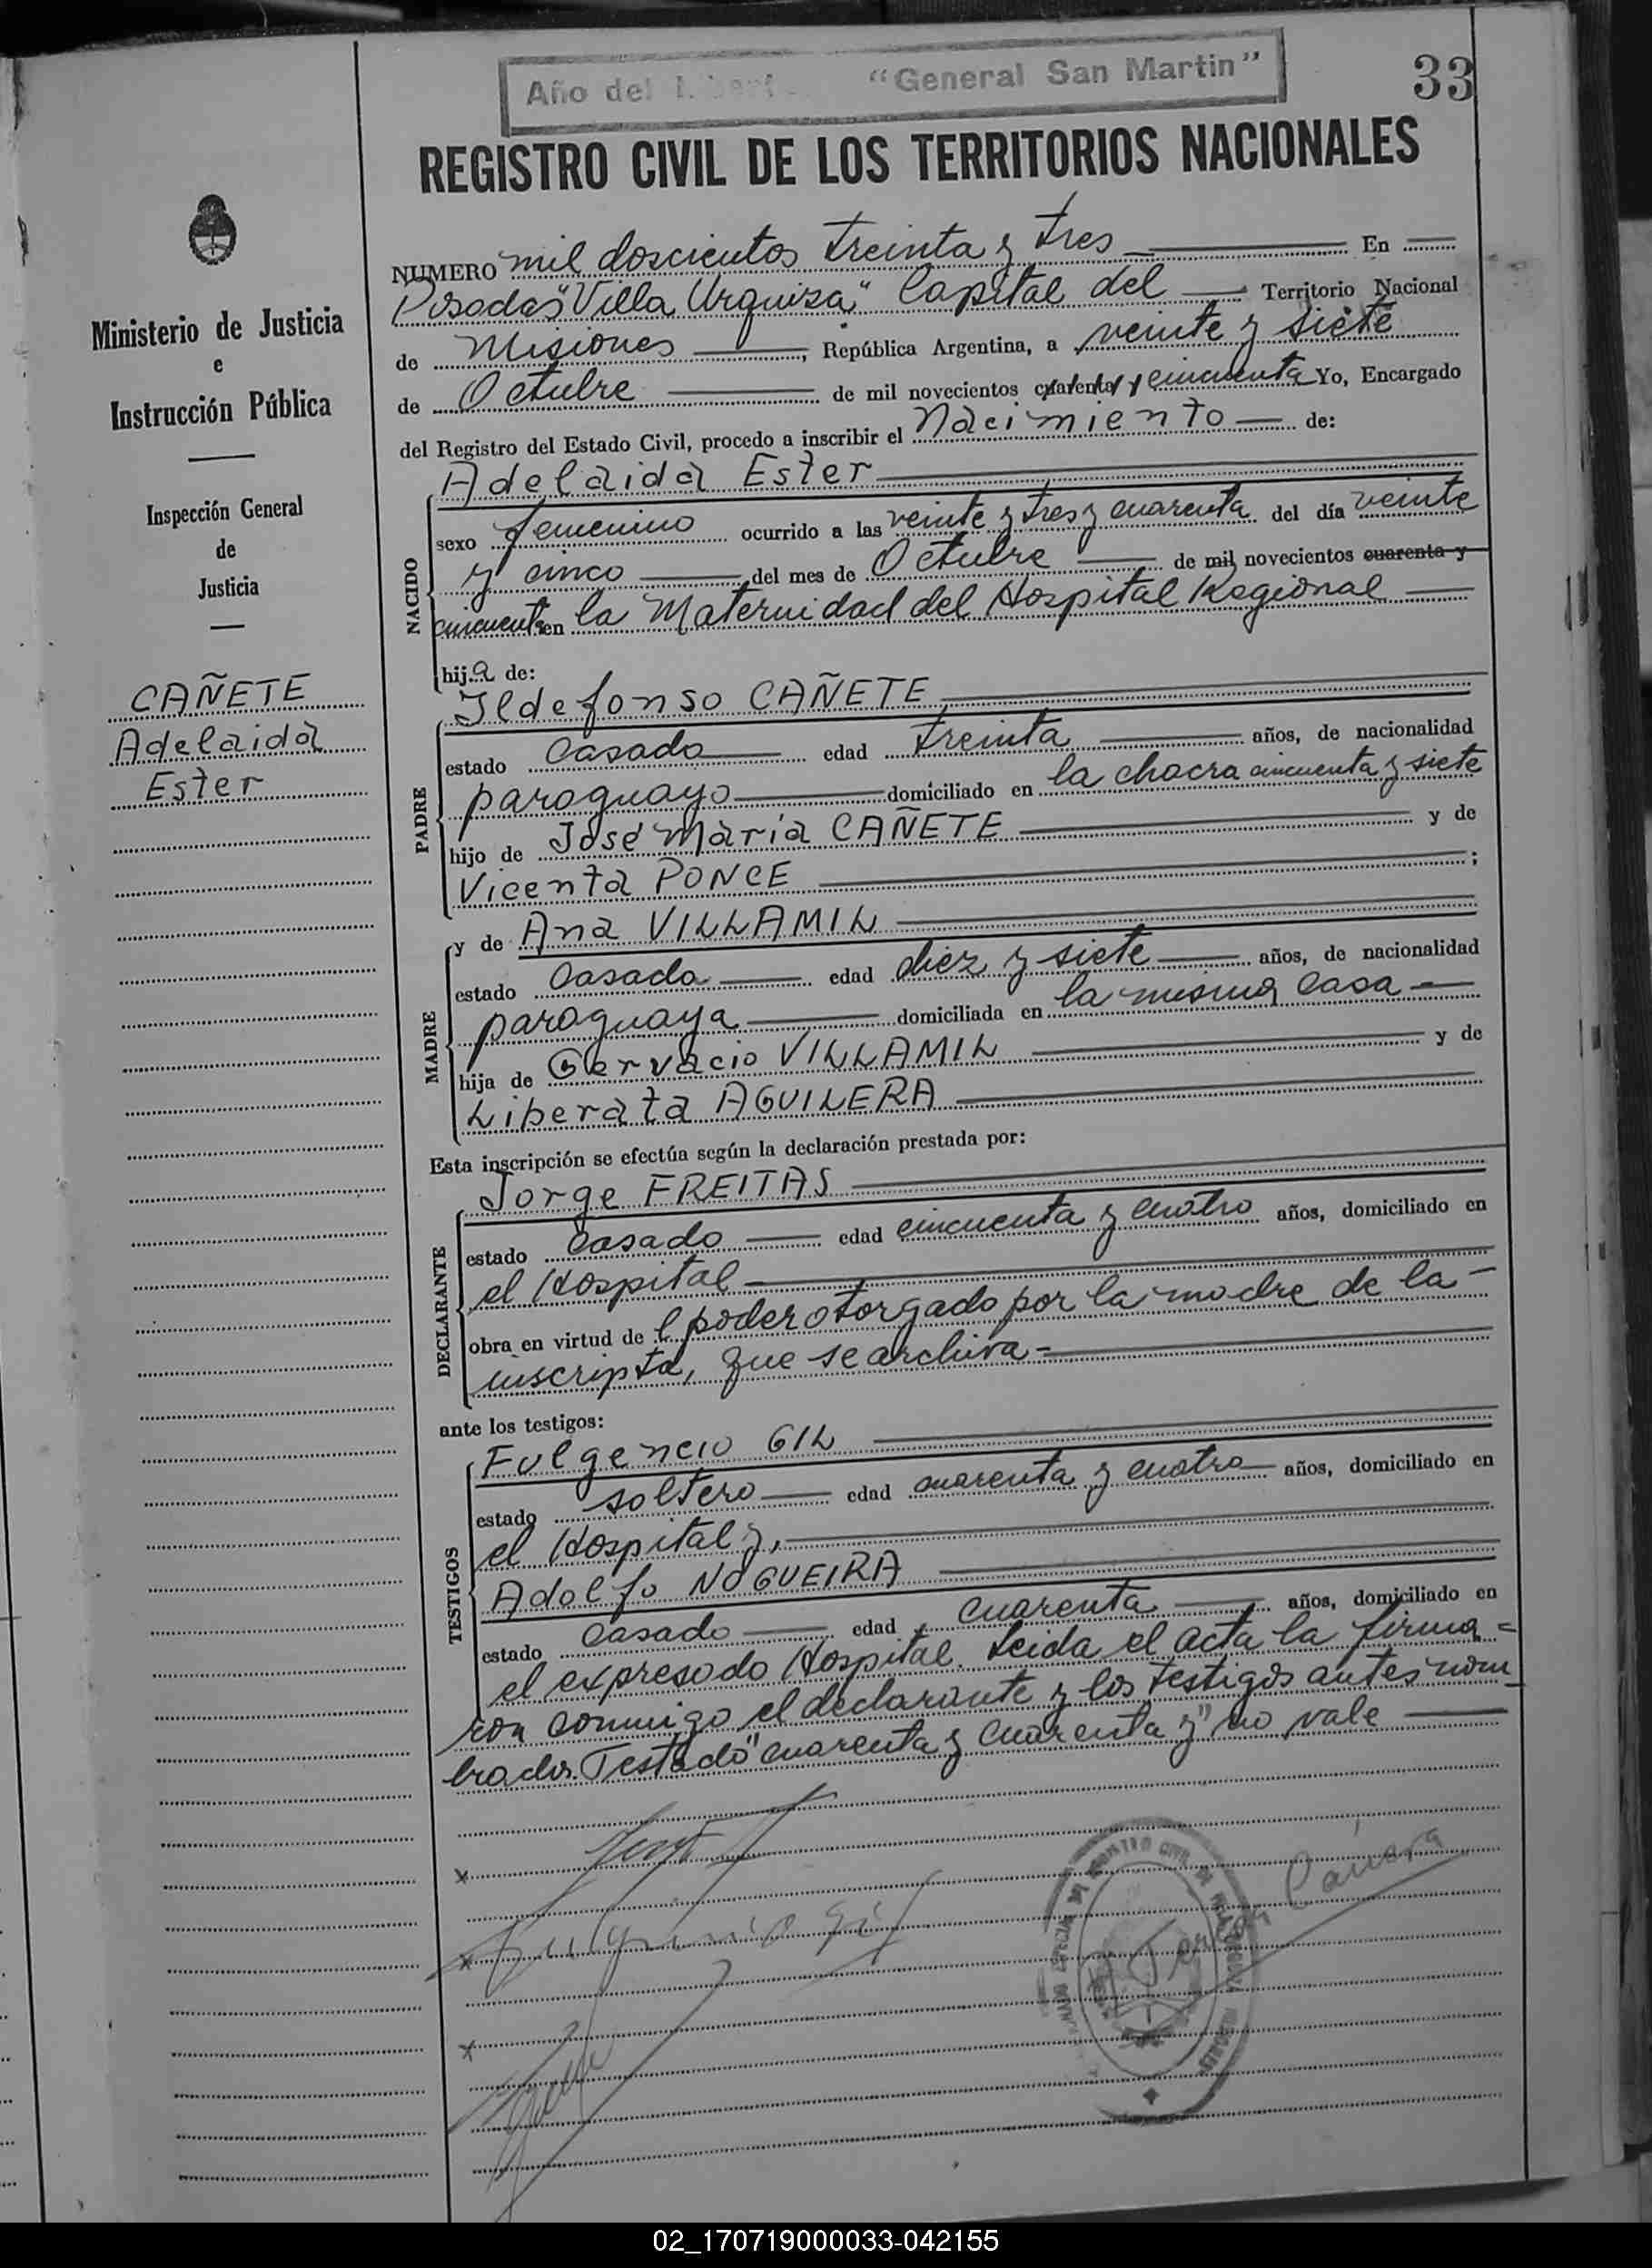 Año del Libert "General San Martin"
33
REGISTRO CIVIL DE LOS TERRITORIOS NACIONALES
Ministerio de Justicia
e
Instrucción Pública
Inspección General
de
Justicia
CAÑETE
Adelaida
Ester
NUMERO mil doscientos treinta y tres En
Posadas "Villa Urquiza" Capital del Territorio Nacional
de Misiones, República Argentina, a veinte y siete
de Octubre de mil novecientos cuarenta y cincuenta Yo, Encargado
del Registro del Estado Civil, procedo a inscribir el Nacimiento de:
NACIDO
Adelaida Ester
sexo femenino ocurrido a las veinte y tres y cuarenta del día veinte
y cinco del mes de Octubre de mil novecientos cuarenta y
cincuenta en la Maternidad del Hospital Regional
hija de:
PADRE
Ildefonso CAÑETE
estado Casado edad treinta años, de nacionalidad
paraguayo domiciliado en la chacra cincuenta y siete
hijo de José María CAÑETE y de
Vicenta PONCE ;
MADRE
y de Ana VILLAMIL
estado Casada edad diez y siete años, de nacionalidad
paraguaya domiciliada en la misma casa
hija de Gervacio VILLAMIL y de
Liberata AGUILERA
Esta inscripción se efectúa según la declaración prestada por:
DECLARANTE
Jorge FREITAS
estado Casado edad cincuenta y cuatro años, domiciliado en
el Hospital
obra en virtud del poder otorgado por la madre de la
inscripta, que se archiva
ante los testigos:
TESTIGOS
Fulgencio GIL
estado soltero edad cuarenta y cuatro años, domiciliado en
el Hospital y,
Adolfo NOGUEIRA
estado Casado edad cuarenta años, domiciliado en
el expresado Hospital. Leida el acta la firma=
ron conmigo el declarante y los testigos antes nom
brados. Testado "cuarenta y cuarenta y" no vale
x
x Fulgencio Gil
x
Teresa Cámara
02_170719000033-042155